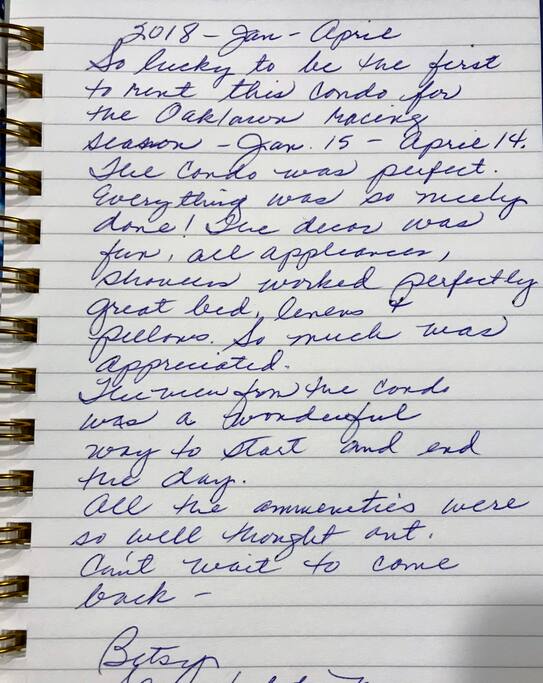 2018 - Jan - April
So lucky to be the first
to rent this condo for
the Oaklawn racing
season - Jan. 15 - April 14.
The condo was perfect.
Everything was so nicely
done! The decor was
fun, all appliances,
showers worked perfectly
great bed, linens &
pillows. So much was
appreciated.
The view from the condo
was a wonderful
way to start and end
the day.
All the ammenities were
so well thought out.
Can't wait to come
back -
Betsy